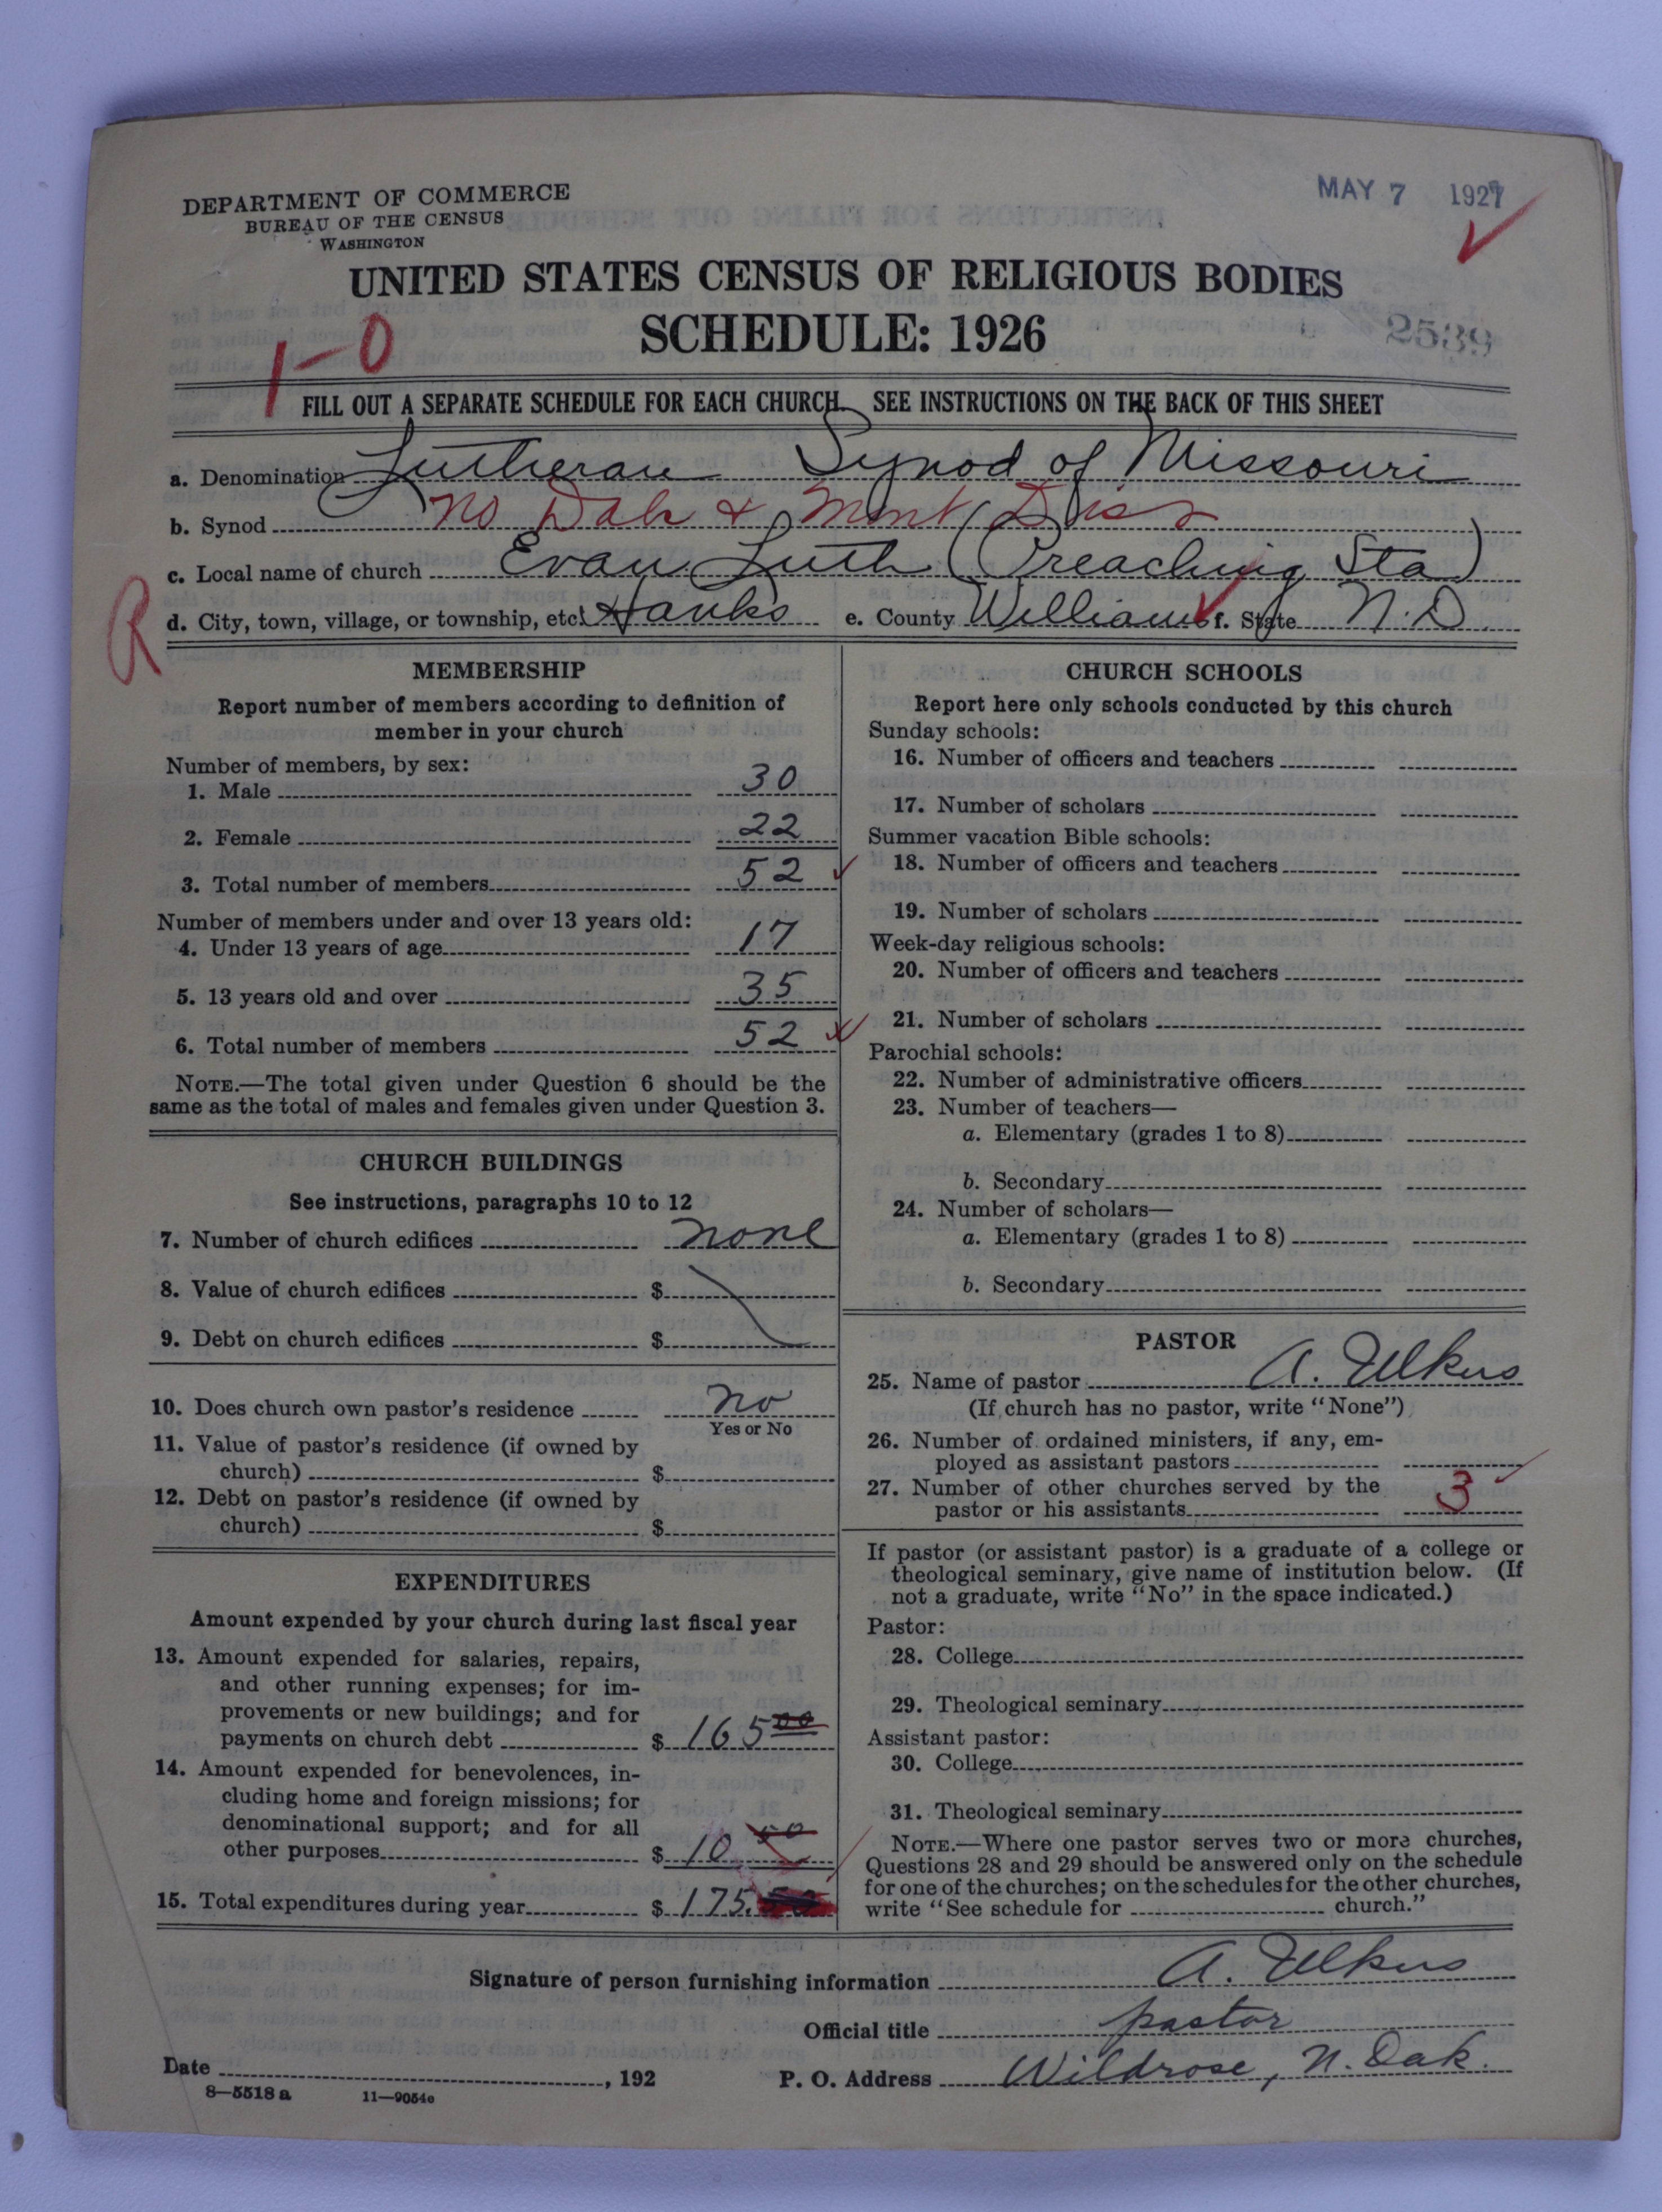 DEPARTMENT OF COMMERCE
BUREAU OF THE CENSUS
WASHINGTON
MAY 7 1927
UNITED STATES CENSUS OF RELIGIOUS BODIES
SCHEDULE: 1926
2539
1-0
FILL OUT A SEPARATE SCHEDULE FOR EACH CHURCH. SEE INSTRUCTIONS ON THE BACK OF THIS SHEET
a. Denomination Lutheran Synod of Missouri
b. Synod No Dak & Mont Dis
c. Local name of church Evan. Luth (Preaching Sta)
R
d. City, town, village, or township, etc. Hanks e. County Williams f. State N.D.
MEMBERSHIP
Report number of members according to definition of
member in your church
Number of members, by sex:
1. Male 30
2. Female 22
3. Total number of members 52
Number of members under and over 13 years old:
4. Under 13 years of age 17
5. 13 years old and over 35
6. Total number of members 52
NOTE.—The total given under Question 6 should be the
same as the total of males and females given under Question 3.
CHURCH BUILDINGS
See instructions, paragraphs 10 to 12
7. Number of church edifices none
8. Value of church edifices $
9. Debt on church edifices $
10. Does church own pastor's residence no
Yes or No
11. Value of pastor's residence (if owned by
church) $
12. Debt on pastor's residence (if owned by
church) $
EXPENDITURES
Amount expended by your church during last fiscal year
13. Amount expended for salaries, repairs,
and other running expenses; for im-
provements or new buildings; and for
payments on church debt $ 165 00
14. Amount expended for benevolences, in-
cluding home and foreign missions; for
denominational support; and for all
other purposes $ 10 50
15. Total expenditures during year $ 175.50
CHURCH SCHOOLS
Report here only schools conducted by this church
Sunday schools:
16. Number of officers and teachers
17. Number of scholars
Summer vacation Bible schools:
18. Number of officers and teachers
19. Number of scholars
Week-day religious schools:
20. Number of officers and teachers
21. Number of scholars
Parochial schools:
22. Number of administrative officers
23. Number of teachers—
a. Elementary (grades 1 to 8)
b. Secondary
24. Number of scholars—
a. Elementary (grades 1 to 8)
b. Secondary
PASTOR
25. Name of pastor A. Ulkus
(If church has no pastor, write "None")
26. Number of ordained ministers, if any, em-
ployed as assistant pastors
27. Number of other churches served by the
pastor or his assistants 3
If pastor (or assistant pastor) is a graduate of a college or
theological seminary, give name of institution below. (If
not a graduate, write "No" in the space indicated.)
Pastor:
28. College
29. Theological seminary
Assistant pastor:
30. College
31. Theological seminary
NOTE.—Where one pastor serves two or more churches,
Questions 28 and 29 should be answered only on the schedule
for one of the churches; on the schedules for the other churches,
write "See schedule for church."
Signature of person furnishing information A. Ulkus
Official title pastor
Date , 192 P. O. Address Wildrose, N. Dak.
8—5518 a 11—9054e